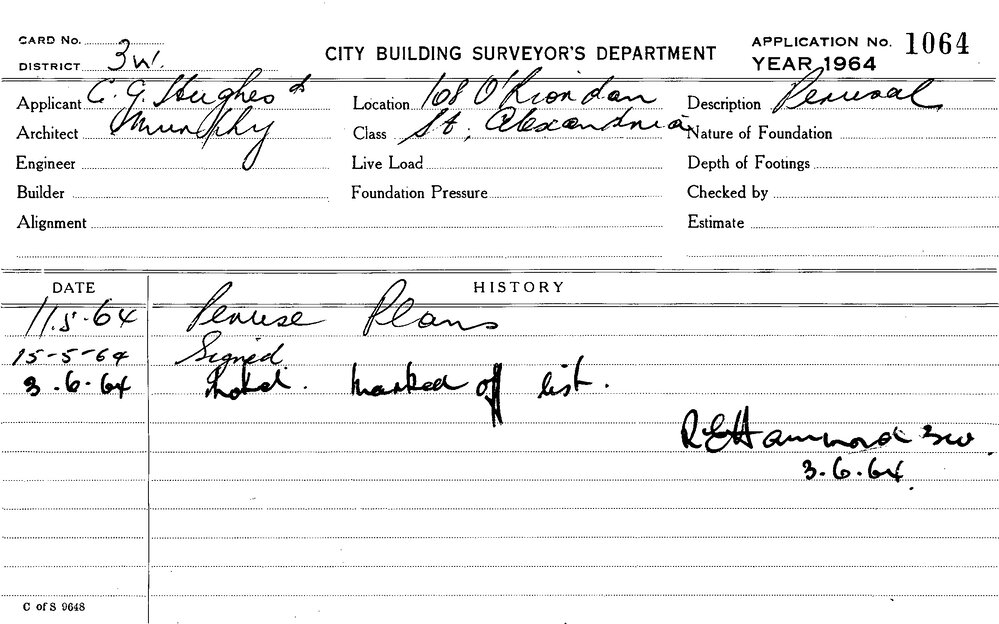 CARD No.
DISTRICT 3W.
CITY BUILDING SURVEYOR'S DEPARTMENT
APPLICATION No. 1064
YEAR 1964
Applicant C. G. Hughes &
Location 108 O'Riordan
Description Perusal
Architect Murphy
Class St, Alexandria
Nature of Foundation
Engineer
Live Load
Depth of Footings
Builder
Foundation Pressure
Checked by
Alignment
Estimate
DATE HISTORY
11.5.64 Peruse Plans
15-5-64 Signed
3.6.64 Noted. Marked off list.
R E Hammond 3W.
3.6.64.
C of S 9648